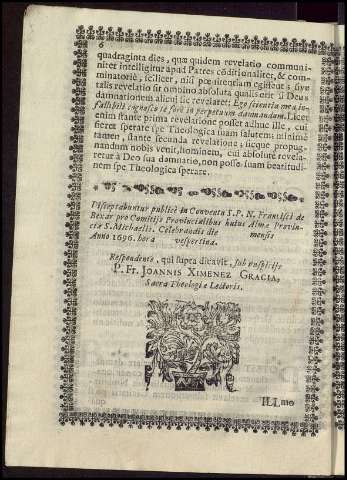 6
quadraginta dies, quæ quidem revelatio communi-
niter intelligitur apud Patres cõditionaliter, & com-
minatoriè, scilicet, nisi pœnitentiam egissent: sivè
talis revelatio sit omninò absoluta qualis erit si Deus
damnationem alicui sic revelaret; Ego scientia mea in-
fallibili cognosco te fore in perpetuum damnandum. Licet
enim stante prima revelatione posset adhuc ille, cui
fieret sperare spe Theologica suam salutem; nihilomi-
tamen, stante secunda revelatione, sicque propug-
nandum nobis venit, hominem, cui absolutè revela-
retur à Deo sua damnatio, non posse suam beatitudi-
nem spe Theologica sperare.
Disceptabuntur publicè in Conventu S. P. N. Francisci de
Bexar pro Comitijs Provincialibus huius Almæ Provin-
ciæ S. Michaelis. Celebrandis die mensis
Anno 1696. hora vespertina.
Respondente, qui supra dicavit, sub auspicijs
P. Fr. JOANNIS XIMENEZ GRACIA,
Sacræ Theologiæ Lectoris.
ILLmo